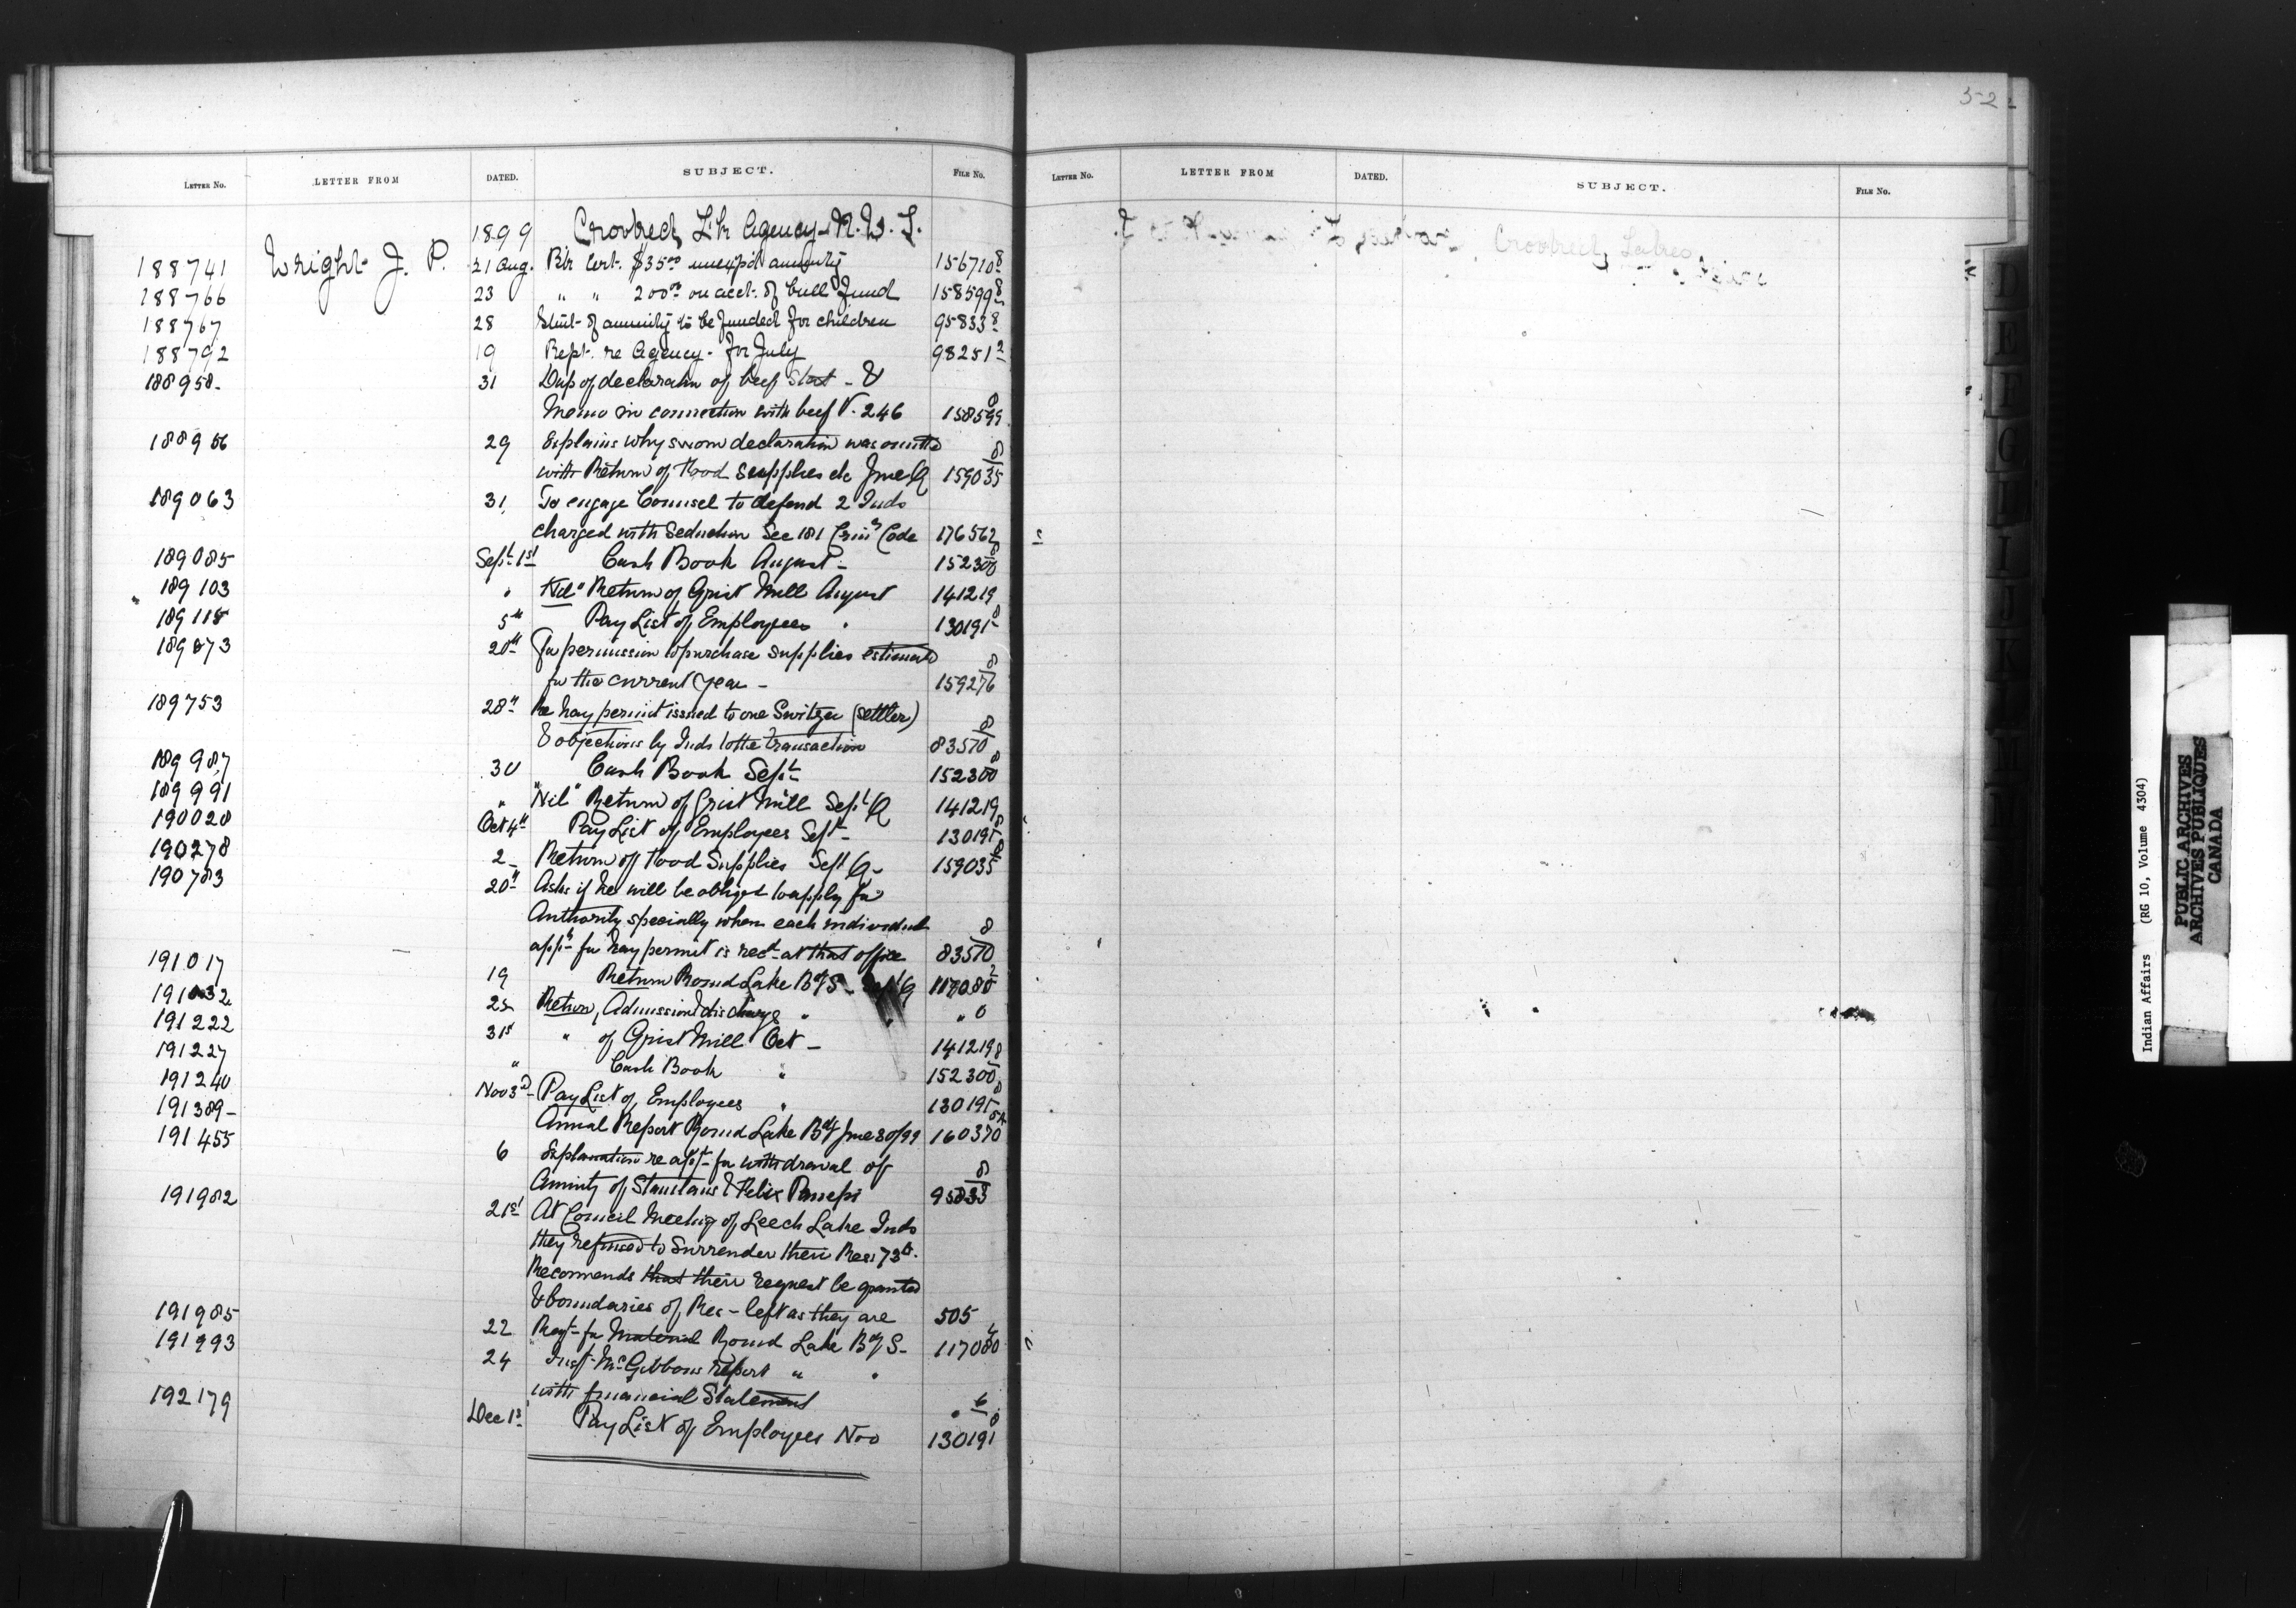 LETTER No. LETTER FROM DATED. SUBJECT. FILE No.
1899 Crooked Lk Agency N.W.T.
188741 Wright J. P. 21 Aug. Bk Cert. $35.00 unexp'd annuity 156710 8
188766 23 " " 200.00 on acct. of Cull Fund 158599 8
188767 28 Stmt of annuity to be funded for children 95833 8
188792 19 Rept. re Agency - for July 98251 2
188958 - 31 Dup of declaration of beef - &
Memo in connection with beef V. 246 158599 8
188956 29 Explains why sworn declaration was omitted
with Return of Food Supplies etc June Q 159035 8
189063 31 To engage Counsel to defend 2 Inds
charged with Seduction Sec 181 Crim Code 176562
189085 Sept 1st Cash Book August - 152300 8
189103 " "Nil" Return of Grist Mill August 141219
189118 5th Pay List of Employees " 130191 8
189873 20th For permission to purchase supplies estimated
for the current year - 159276 8
189753 28th Re hay permit issued to one Switzer (settler)
& objections by Inds to the transaction 83570 8
189987 30 Cash Book Sept 152300 8
189991 " "Nil" Return of Grist Mill Sept Q 141219
190020 Oct 4th Pay List of Employees Sept - 130191 8
190278 2 - Return of Food Supplies Sept Q - 159035 8
190783 20th Asks if he will be obliged to apply for
Authority specially when each individual
appn for hay permit is recd at that office 83570 8
191017 19 Return Round Lake Bdg S - Sept Q 117080 2
191032 25 Return, Admission & discharge " " " 8
191222 31st " of Grist Mill Oct - 141219
191227 " Cash Book " 152300 8
191240 Nov 3d Pay List of Employees " 130191 8
191389 - Annual Report Round Lake Bdg June 30/99 160370
191455 6 Explanation re appn for withdrawal of
Annuity of Stanislaus & Felix 95833 8
191982 21st At Council Meeting of Leech Lake Inds
they refused to Surrender their Res 73A.
Recommends that their request be granted
& boundaries of Res - left as they are 505
191985 22 Reqt for Material Round Lake Bdg S - 117080
191993 24 Insp. McGibbons report " "
with financial Statement " 6
192179 Dec 1st Pay List of Employees Nov 130191 8
52
LETTER No. LETTER FROM DATED. SUBJECT. FILE No.
Crooked Lakes
D
E
F
G
I
J
K
Indian Affairs (RG 10, Volume 4304)
PUBLIC ARCHIVES
ARCHIVES PUBLIQUES
CANADA